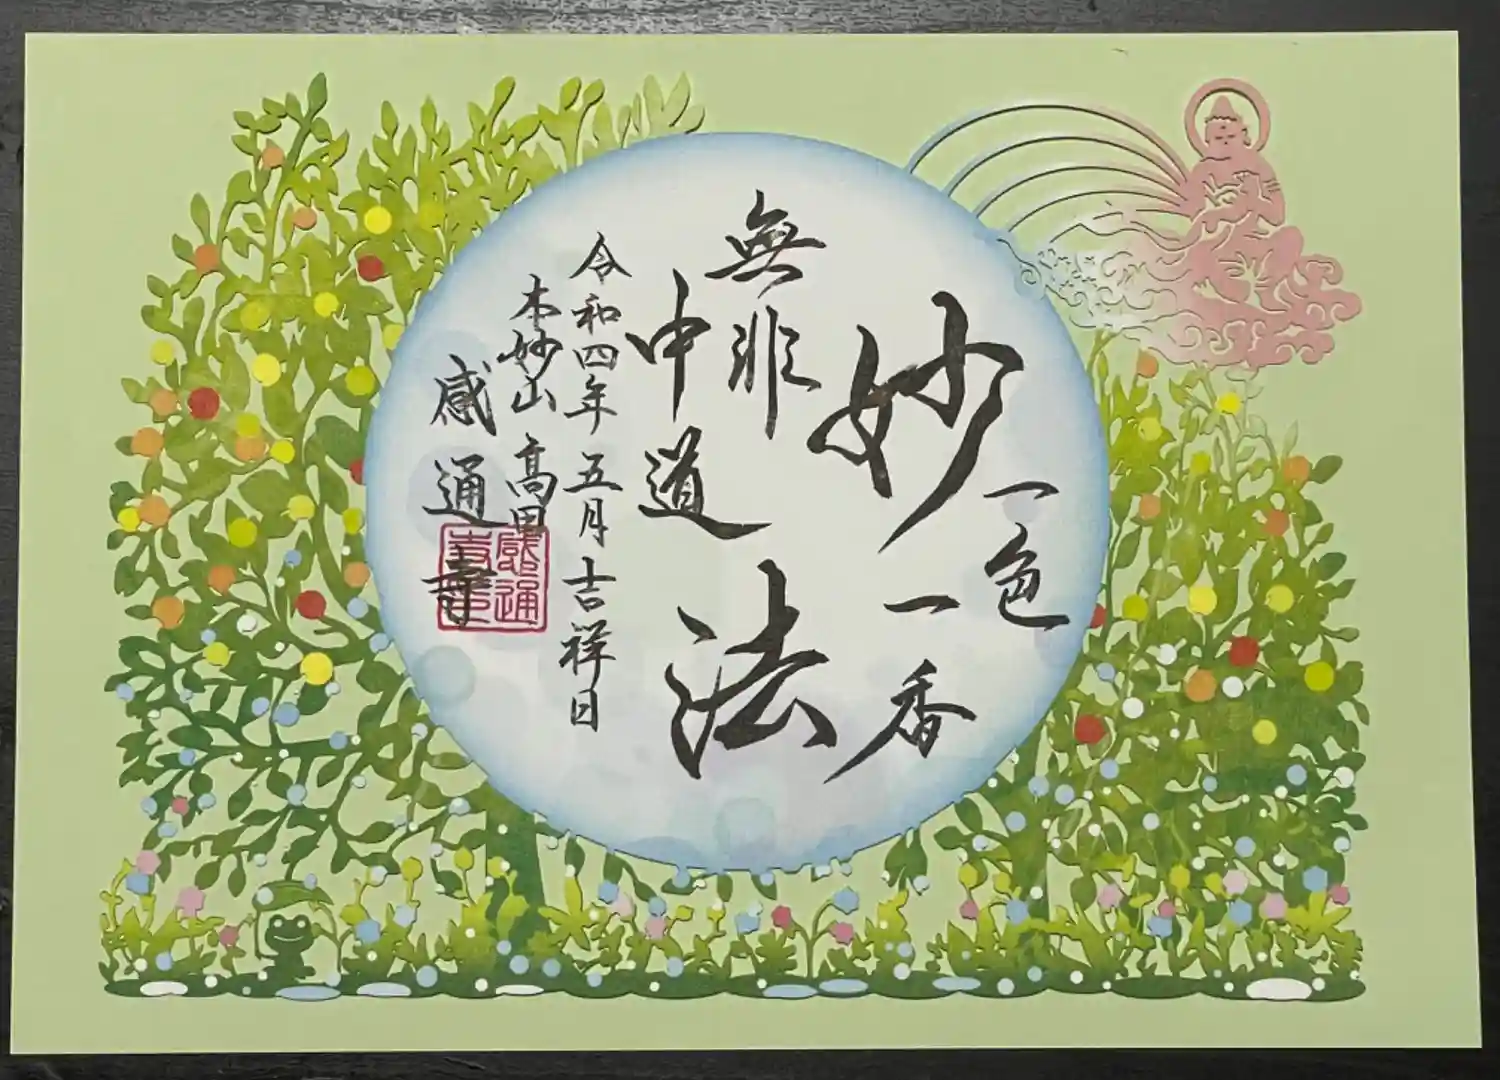 妙法
一色
一香
無非
中道
令和四年五月吉祥日
本妙山 高田
感通寺
感通
寺印